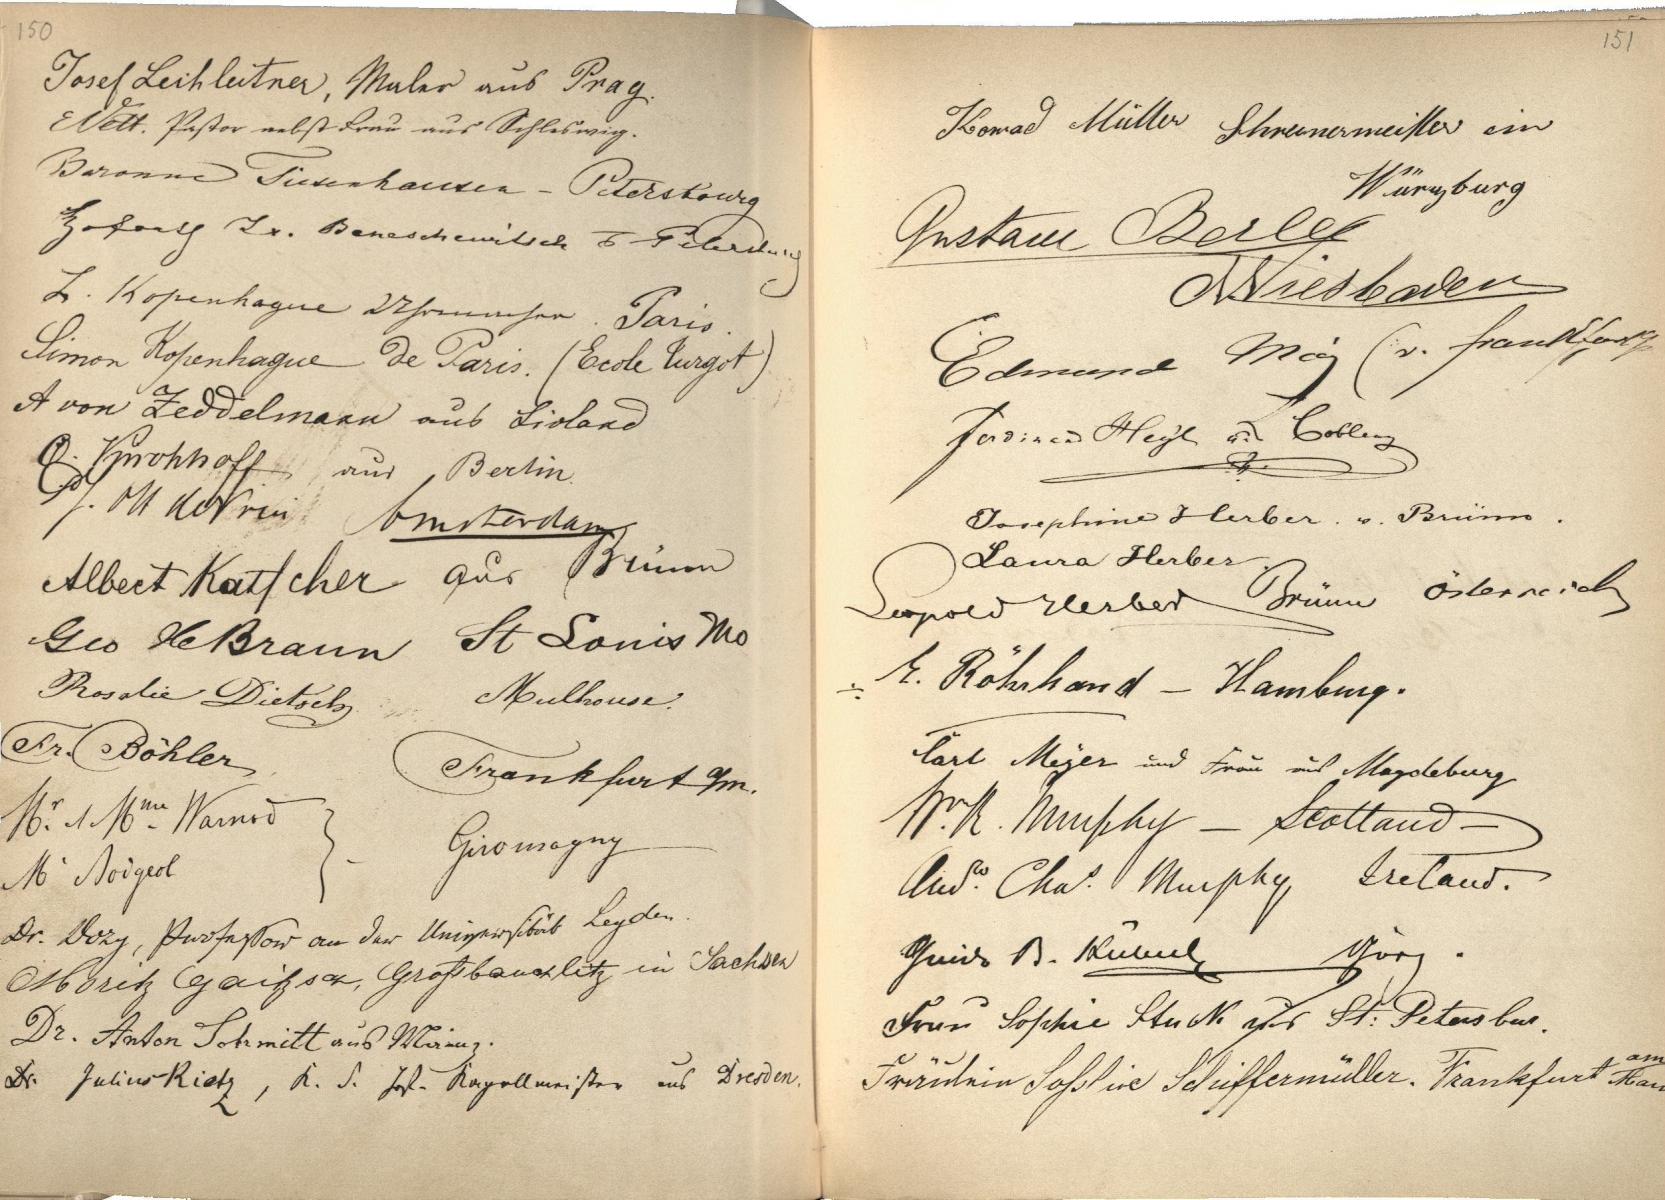 150
Josef Leihleitner, Maler aus Prag.
Nett. Pastor nebst Frau aus Schleswig.
Baronne Tiesenhausen - Petersbourg
Beneschewitsch Petersburg
L. Kopenhague Paris.
Simon Kopenhague de Paris. (Ecole Turgot)
A von Zeddelmann aus Livland
O. Kirchhoff aus Berlin
Amsterdam
Albert Katscher aus Brünn
Geo H Braun St Louis Mo
Rosalie Dietsch Mulhouse.
Fr. Böhler Frankfurt a/m.
Mr. & Mme Warnod
Giromagny
Mr
Dr. Dozy, Professor an der Universität Leyden.
Moritz in Sachsen
Dr. Anton Schmitt aus Mainz.
Dr. Julius Rietz, K. S. Hof-Kapellmeister aus Dresden.
151
Konrad Müller Schreinermeister in
Würzburg
Gustave Berle
Wiesbaden
Edmund May (v. Frankfurt
Ferdinand Heyl Coblenz
Josephine Herber. v. Brünn.
Laura Herber.
Leopold Herber Brünn Österreich
E. Röhrhand - Hamburg.
Carl Meyer und Frau aus Magdeburg
Wm. R. Murphy - Scotland -
And. Chas. Murphy Ireland.
Guido B.
Frau Sophie Stuck aus St: Petersbur.
Fräulein Sophie Schiffermüller. Frankfurt am Main